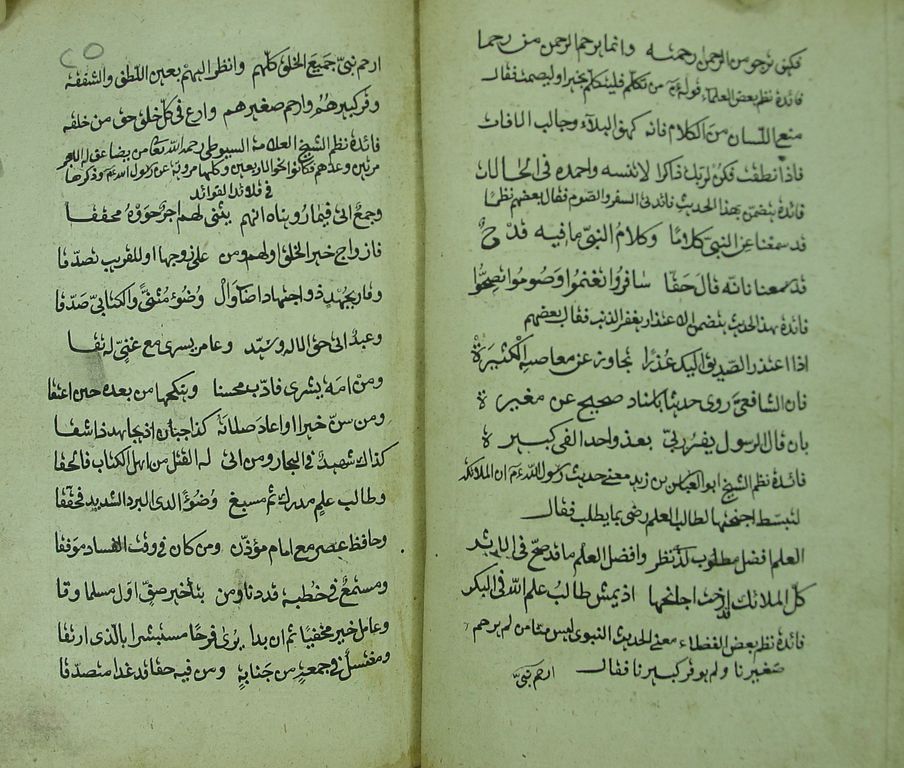 فكن ترجو من الرحمن رحمته وانما يرحم الرحمن من رحما
فائدة نظم بعض العلماء قوله عم من تكلم فليتكلم بخير او ليصمت فقال
منع اللسان من الكلام فانه كهف البلاء وجالب الافات
فاذا نطقت فكن لربك ذاكرا لا تنسه واحمده في الحالات
فائدة يتضمن بهذا الحديث فائدتى السفر والصوم فقال بعضهم نظما
قد سمعنا عن النبي كلاما وكلام النبي ما فيه قدح
قد سمعنا بانه قال حقا سافروا تغنموا وصوموا تصحوا
فائدة بهذا الحديث يتضمن الاعتذار يغفر الذنب فقال بعضهم
اذا اعتذر الصديق اليك عذرا تجاوز عن معاصيه الكثيرة
فان الشافعي روى حديثا باسناد صحيح عن مغيرة
بان قال الرسول يغفر ربي بعذر واحد الفى كبيرة
فائدة نظم الشيخ ابو العباس بن زيد معنى حديث رسول الله عم ان الملائكة
لتبسط اجنحتها لطالب العلم رضى بما يطلب فقال
العلم افضل مطلوب لذي نظر وافضل العلم ما قد صح في
كل الملائك ارخت اجنحها اذ يمش طالب علم الله في البكر
فائدة نظم بعض الفضلاء معنى الحديث النبوي ليس منا من لم يرحم
صغيرنا ولم يوقر كبيرنا فقال
ارحم نبي
ارحم نبي جميع الخلق كلهم وانظر اليهم بعين اللطف والشفقه
وقر كبيرهم وارحم صغيرهم وارع في كل خلق حق من خلقه
فائدة نظم الشيخ العلامة السيوطي رحمه الله تعا من يضاعف له الاجر
مرتين وعدهم فكانوا نحو الاربعين وكلها مروية عن رسول الله عم وذكرها
في قلائد الفوائد
وجمع اتى فيما رويناه انهم يثنى لهم اجر حووه محققا
فازواج خير الخلق اولهم ومن على زوجها او للقريب تصدقا
وقار بجهد ذو اجتهاد اصاب وال وضوء مثنى والكتابي صدقا
وعبد اتى حق الاله وسيد وعامر يسرى مع غنى له تقا
ومن امة يشرى فادب محسنا وينكحها من بعده حين اعتقا
ومن سن خيرا او اعاد صلاته كذا جبان اذ يجاهد ذا شقا
كذاك شهيد في البحار ومن اتى له القتل من اهل الكتاب فالحقا
وطالب علم مدرك ثم مسبغ وضوءا لدى البرد الشديد فحققا
وحافظ عصر مع امام مؤذن ومن كان في وقت الفساد موفقا
ومستمع في خطبة قد دنا ومن بتاخير صف اول مسلما وقا
وعامل خير مخفيا ثم ان بدا يرى فرحا مستبشرا بالذى ارتقا
ومغتسل في جمعة من جنابة ومن فيه حقا قد غدا متصدقا